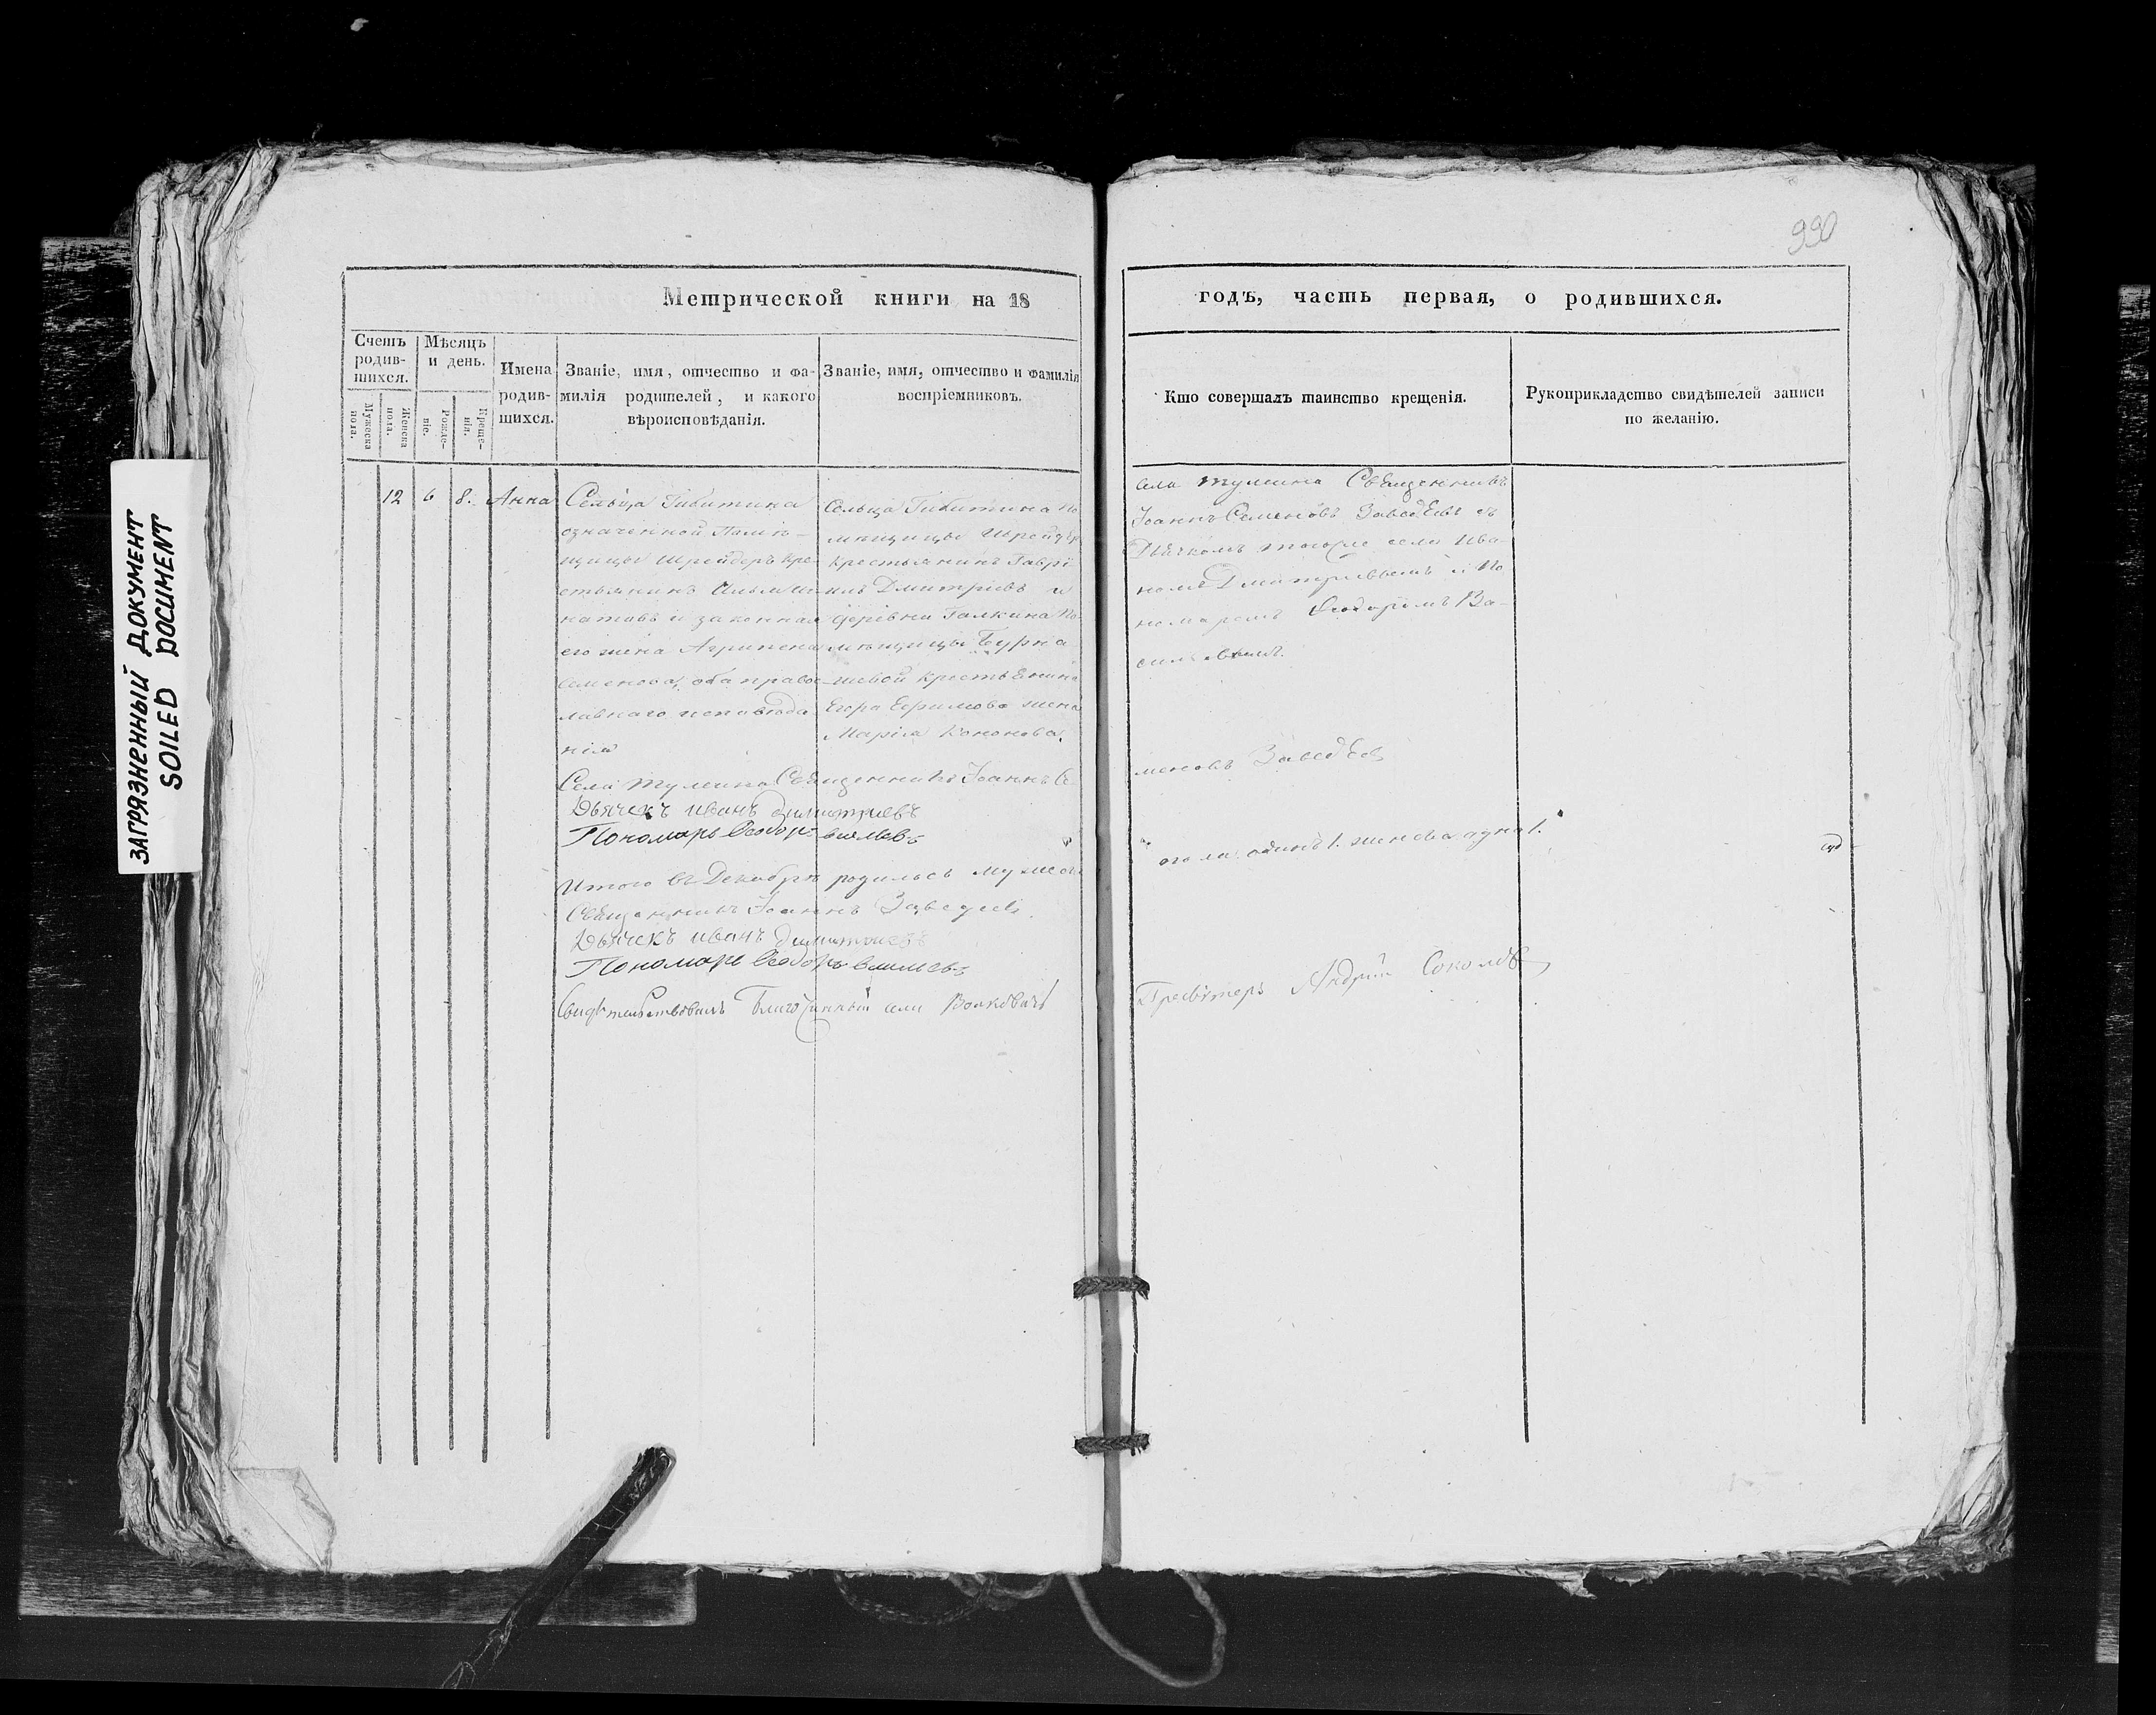 990
Метрической книги на 18
годъ, часть первая, о родившихся.
Счетъ родив-шихся.
Мѣсяцъ и день.
Мужеска пола.
Женска пола.
Рожде-ніе.
Креще-нія.
Имена родив-шихся.
Званіе, имя, отчество и фа-милія родителей, и какого вѣроисповѣданія.
Званіе, имя, отчество и фамилія воспріемниковъ.
Кто совершалъ таинство крещенія.
Рукоприкладство свидѣтелей записи по желанію.
12 6 8. Анна
Сельца
означенной Помѣ-
щицы Шрейдеръ кре-
стьянинъ
и законная
его жена Агрипена
Семенова, оба правос-
лавнаго исповѣда
нія
Сельца По
мѣщицы Шрейдеръ
крестьянинъ Гаврі
илъ Дмитріевъ и
деревни Галкина По
мѣщицы Бурна
шевой крестьянина
Егора Ефимова жена
Марія Кононова.
села Священникъ
Іоаннъ Семеновъ Заведѣевъ съ
Дьячкомъ тогоже села Ива-
номъ Дмитріевымъ и По
номаремъ Ѳеодоромъ Ва-
сильевымъ.
Села Священникъ Іоаннъ Се-
меновъ Заведѣев
Дьячекъ иванъ димитриевъ
Пономарь Ѳеодоръ
Итого въ Декабрѣ родилось мужеск
ого по. одинъ 1. женска одна 1.
Священникъ Іоаннъ Заведеев
Дьячекъ иванъ димитриевъ
Пономарь Ѳеодоръ
Свидѣтельствовалъ Благочинный
Пресвитеръ Андрей Соколовъ
ЗАГРЯЗНЕННЫЙ ДОКУМЕНТ
SOILED DOCUMENT